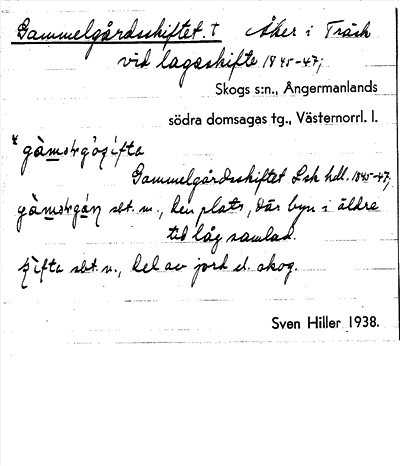 Gammelgårdsskiftet. † Åker i Träsk
vid lagaskifte 1845-47;
Skogs s:n., Ångermanlands
södra domsagas tg., Västernorrl. l.
Gammelgårdsskiftet Lsk hdl. 1845-47;
sbt. m., den plats, där byn i äldre
tid låg samlad.
sbt. n., del av jord el. skog.
Sven Hiller 1938.